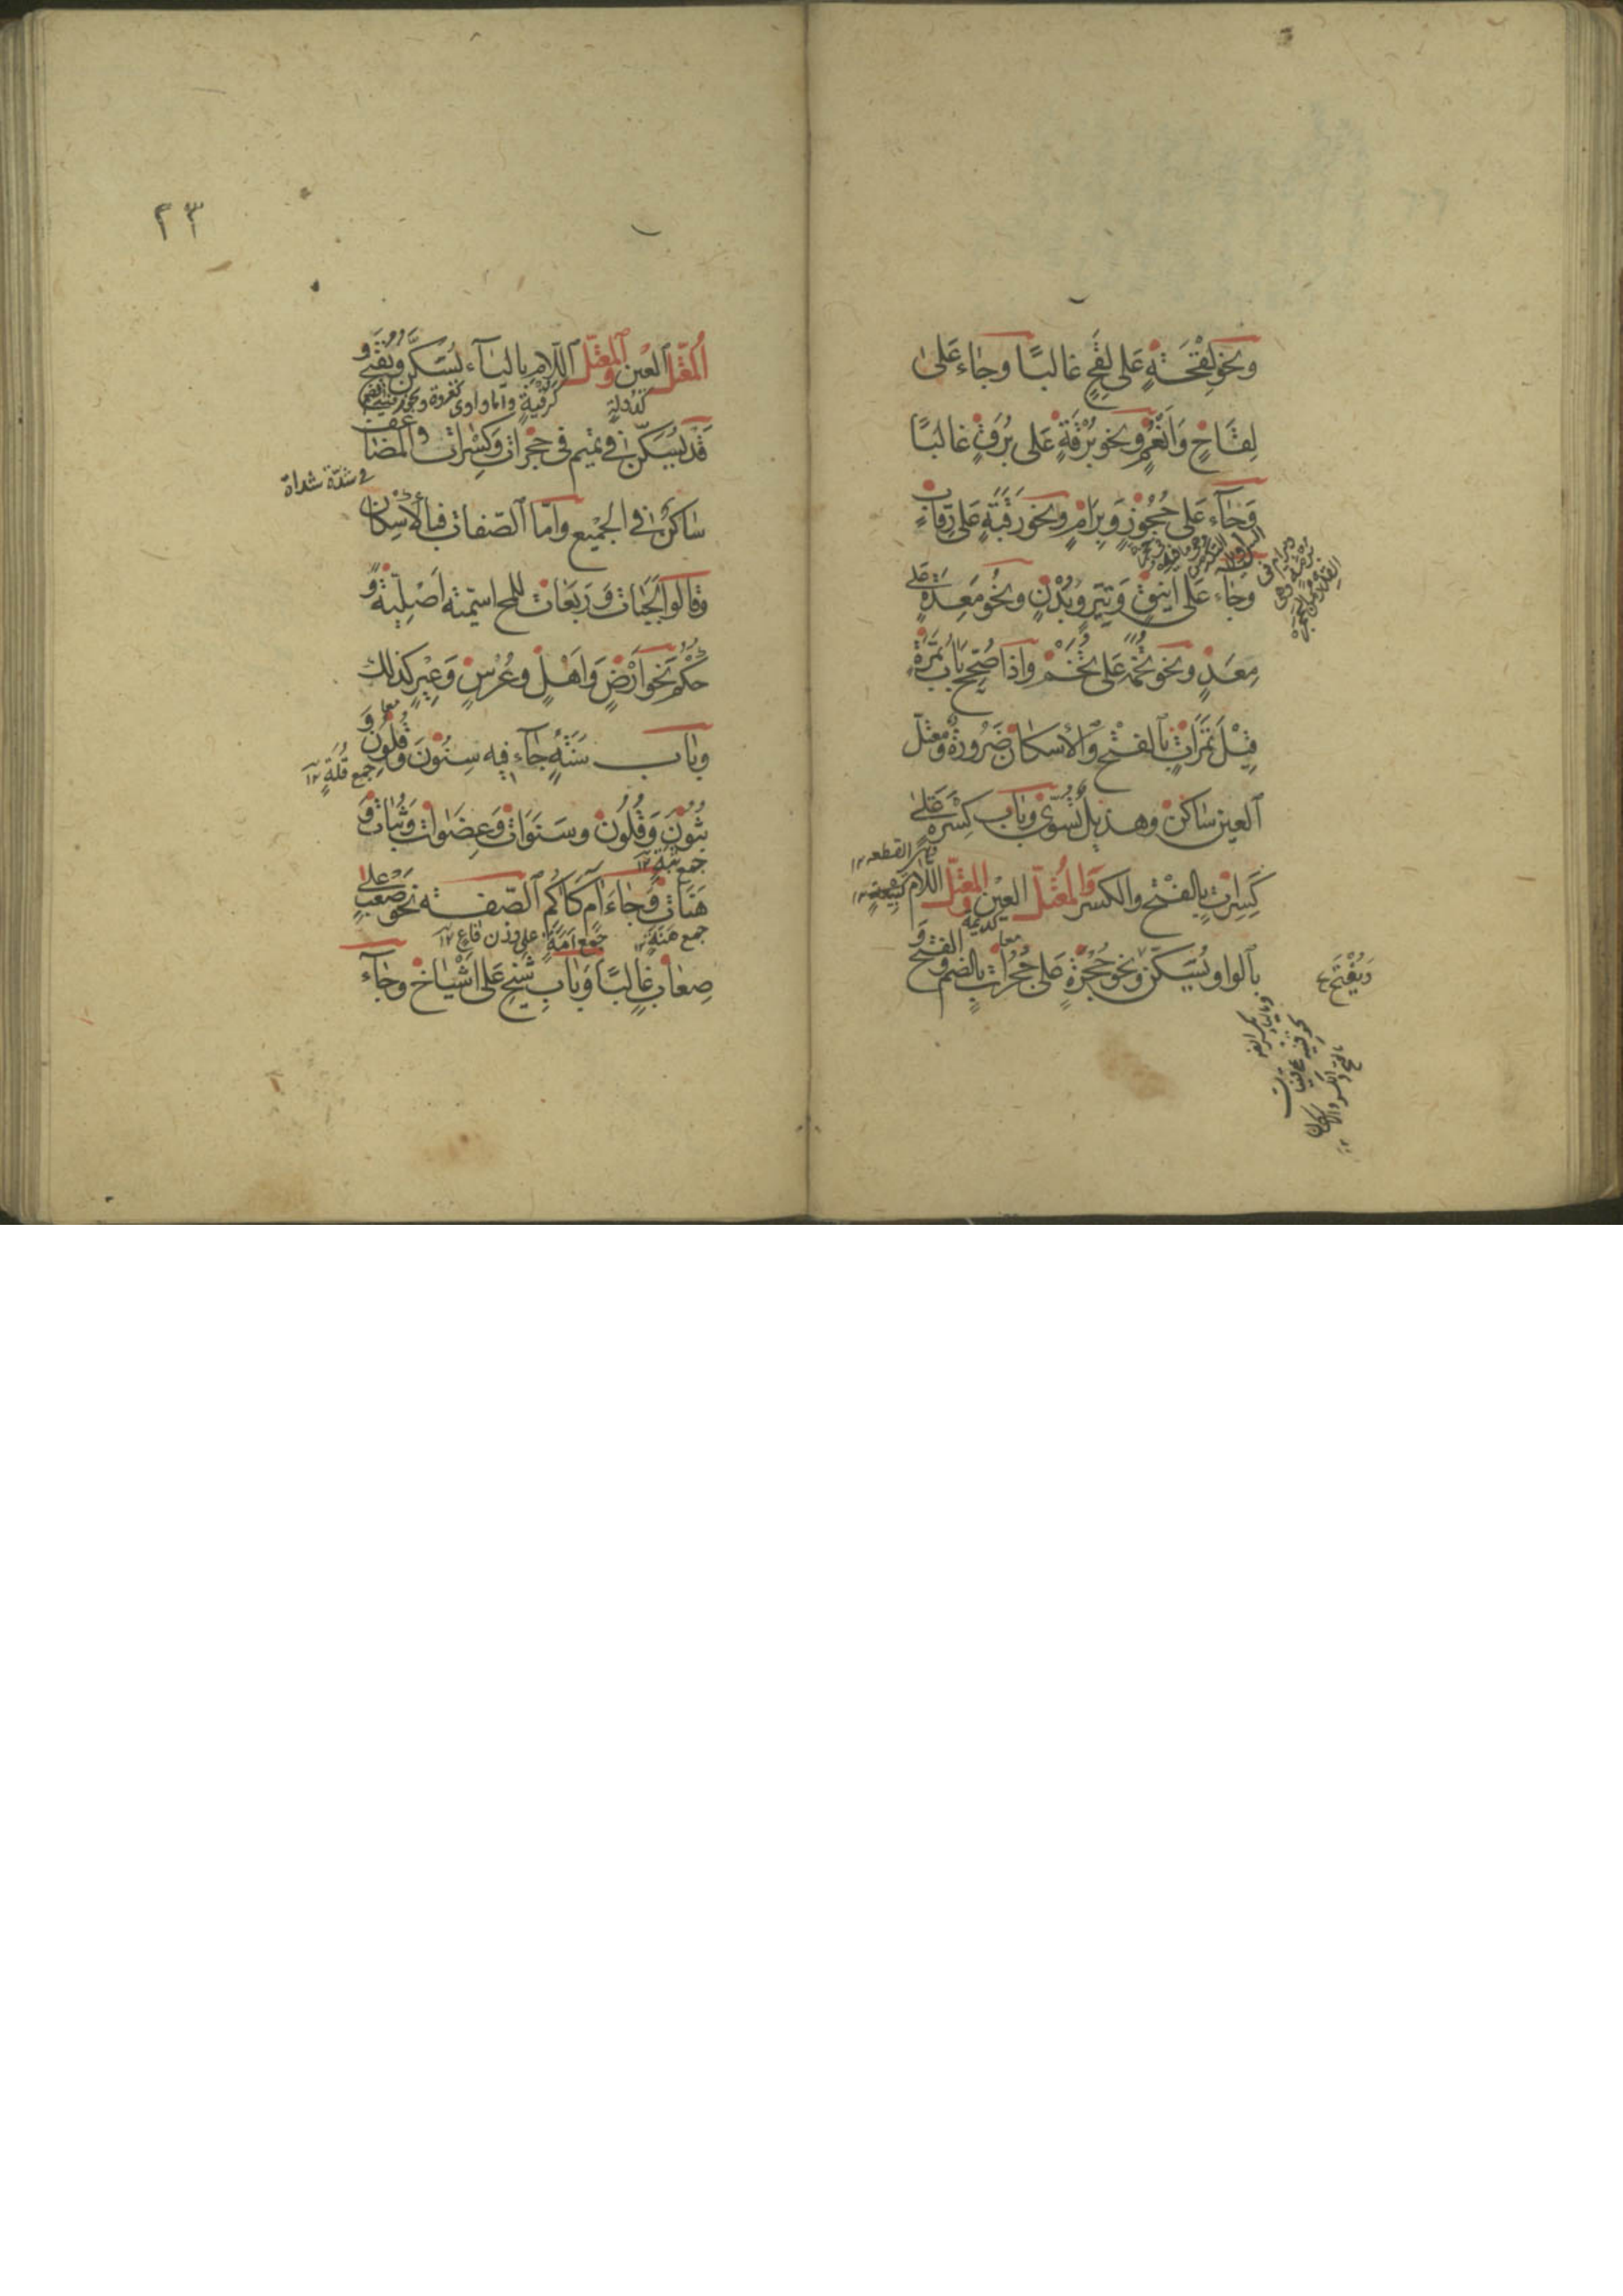 وَنحوُ لِقْحَةٍ عَلى لِقَحٍ غالبًا وجَاءَ عَلىٰ
لِقَاحٍ وَاَنْعُمٍ ونحو بُرْقَةٍ عَلى بُرَقٍ غالبًا
وَجَاءَ عَلى حُجُوزٍ وَبِرَامٍ ونحو رَقَبَةٍ عَلى رِقابٍ
وَجَاءَ عَلى اَيْنُقٍ وَتِيَرٍ وَبُدْنٍ ونحُو مَعِدَةٍ عَلى
مِعَدٍ ونحو تُخَمَةٍ عَلى تُخَمٍ وَاذا صُحِّحَ بَابُ تَمْرَةٍ
قِيْلَ تَمَرَاتٌ بالفتْحِ وَالاسكانُ ضَرُورةٌ وَمُعتلّ
العين سَاكنٌ وهُذيل تُسَوِّى وَبابُ كِسْرَةٍ عَلىٰ
وهى القطعه ١٢
كَسِرَاتٍ بِالفتْحِ والكسر وَالمُعْتَلّ العيْنِ وَالمعتَلّ اللّامِ
كديمة
بالواو يُسَكّنُ ونحو حُجْرَةٍ عَلى حُجُراتٍ بالضمّ وَالفتحِ وَ
معا
وَيُفْتَحُ
٢٣
المُعْتَلّ العيْنِ وَالمعْتَلّ اللّامِ بالياء يُسَكّنُ وَيُفْتَحُ وَ
كدُولةٍ كرُقْيَةٍ وامّا واوى كغروة
قَدْ يُسَكّنُ في تميم في حُجْرات وَكِسْرات وَالمضاعف
في شدّة شدّات
سَاكنٌ في الجميْع وَامّا الصّفات فبالاِسْكان
وَقالوا لَجَبَات وَرَبَعَات لِلمح اسميّة اَصْلِيّةٍ وَ
حُكْمُ نَحو اَرْضٍ وَاَهْلٍ وَعُرْسٍ وَعِيْرٍ كذلك
وبَاب سَنَةٍ جَاء فيه سِنُونَ وَقُلُونَ وَ
معا
جمع قُلَةٍ ١٢
ثُبُوْنَ وَقُلُونَ وسَنَوَات وَعِضَوات وَثُبَات وَ
جمع ثبة ١٢
هَنَات وَجَاءَ آمٍ كَاكُمٍ الصّفة نحو صَعْبٍ عَلىٰ
جمع هَنَةٍ ١٢ جمع اَمَةٍ على وزن قاعٍ ١٢
صِعَابٍ غالبًا وَبَاب شَيْخٍ عَلى اَشْيَاخٍ وجَاءَ